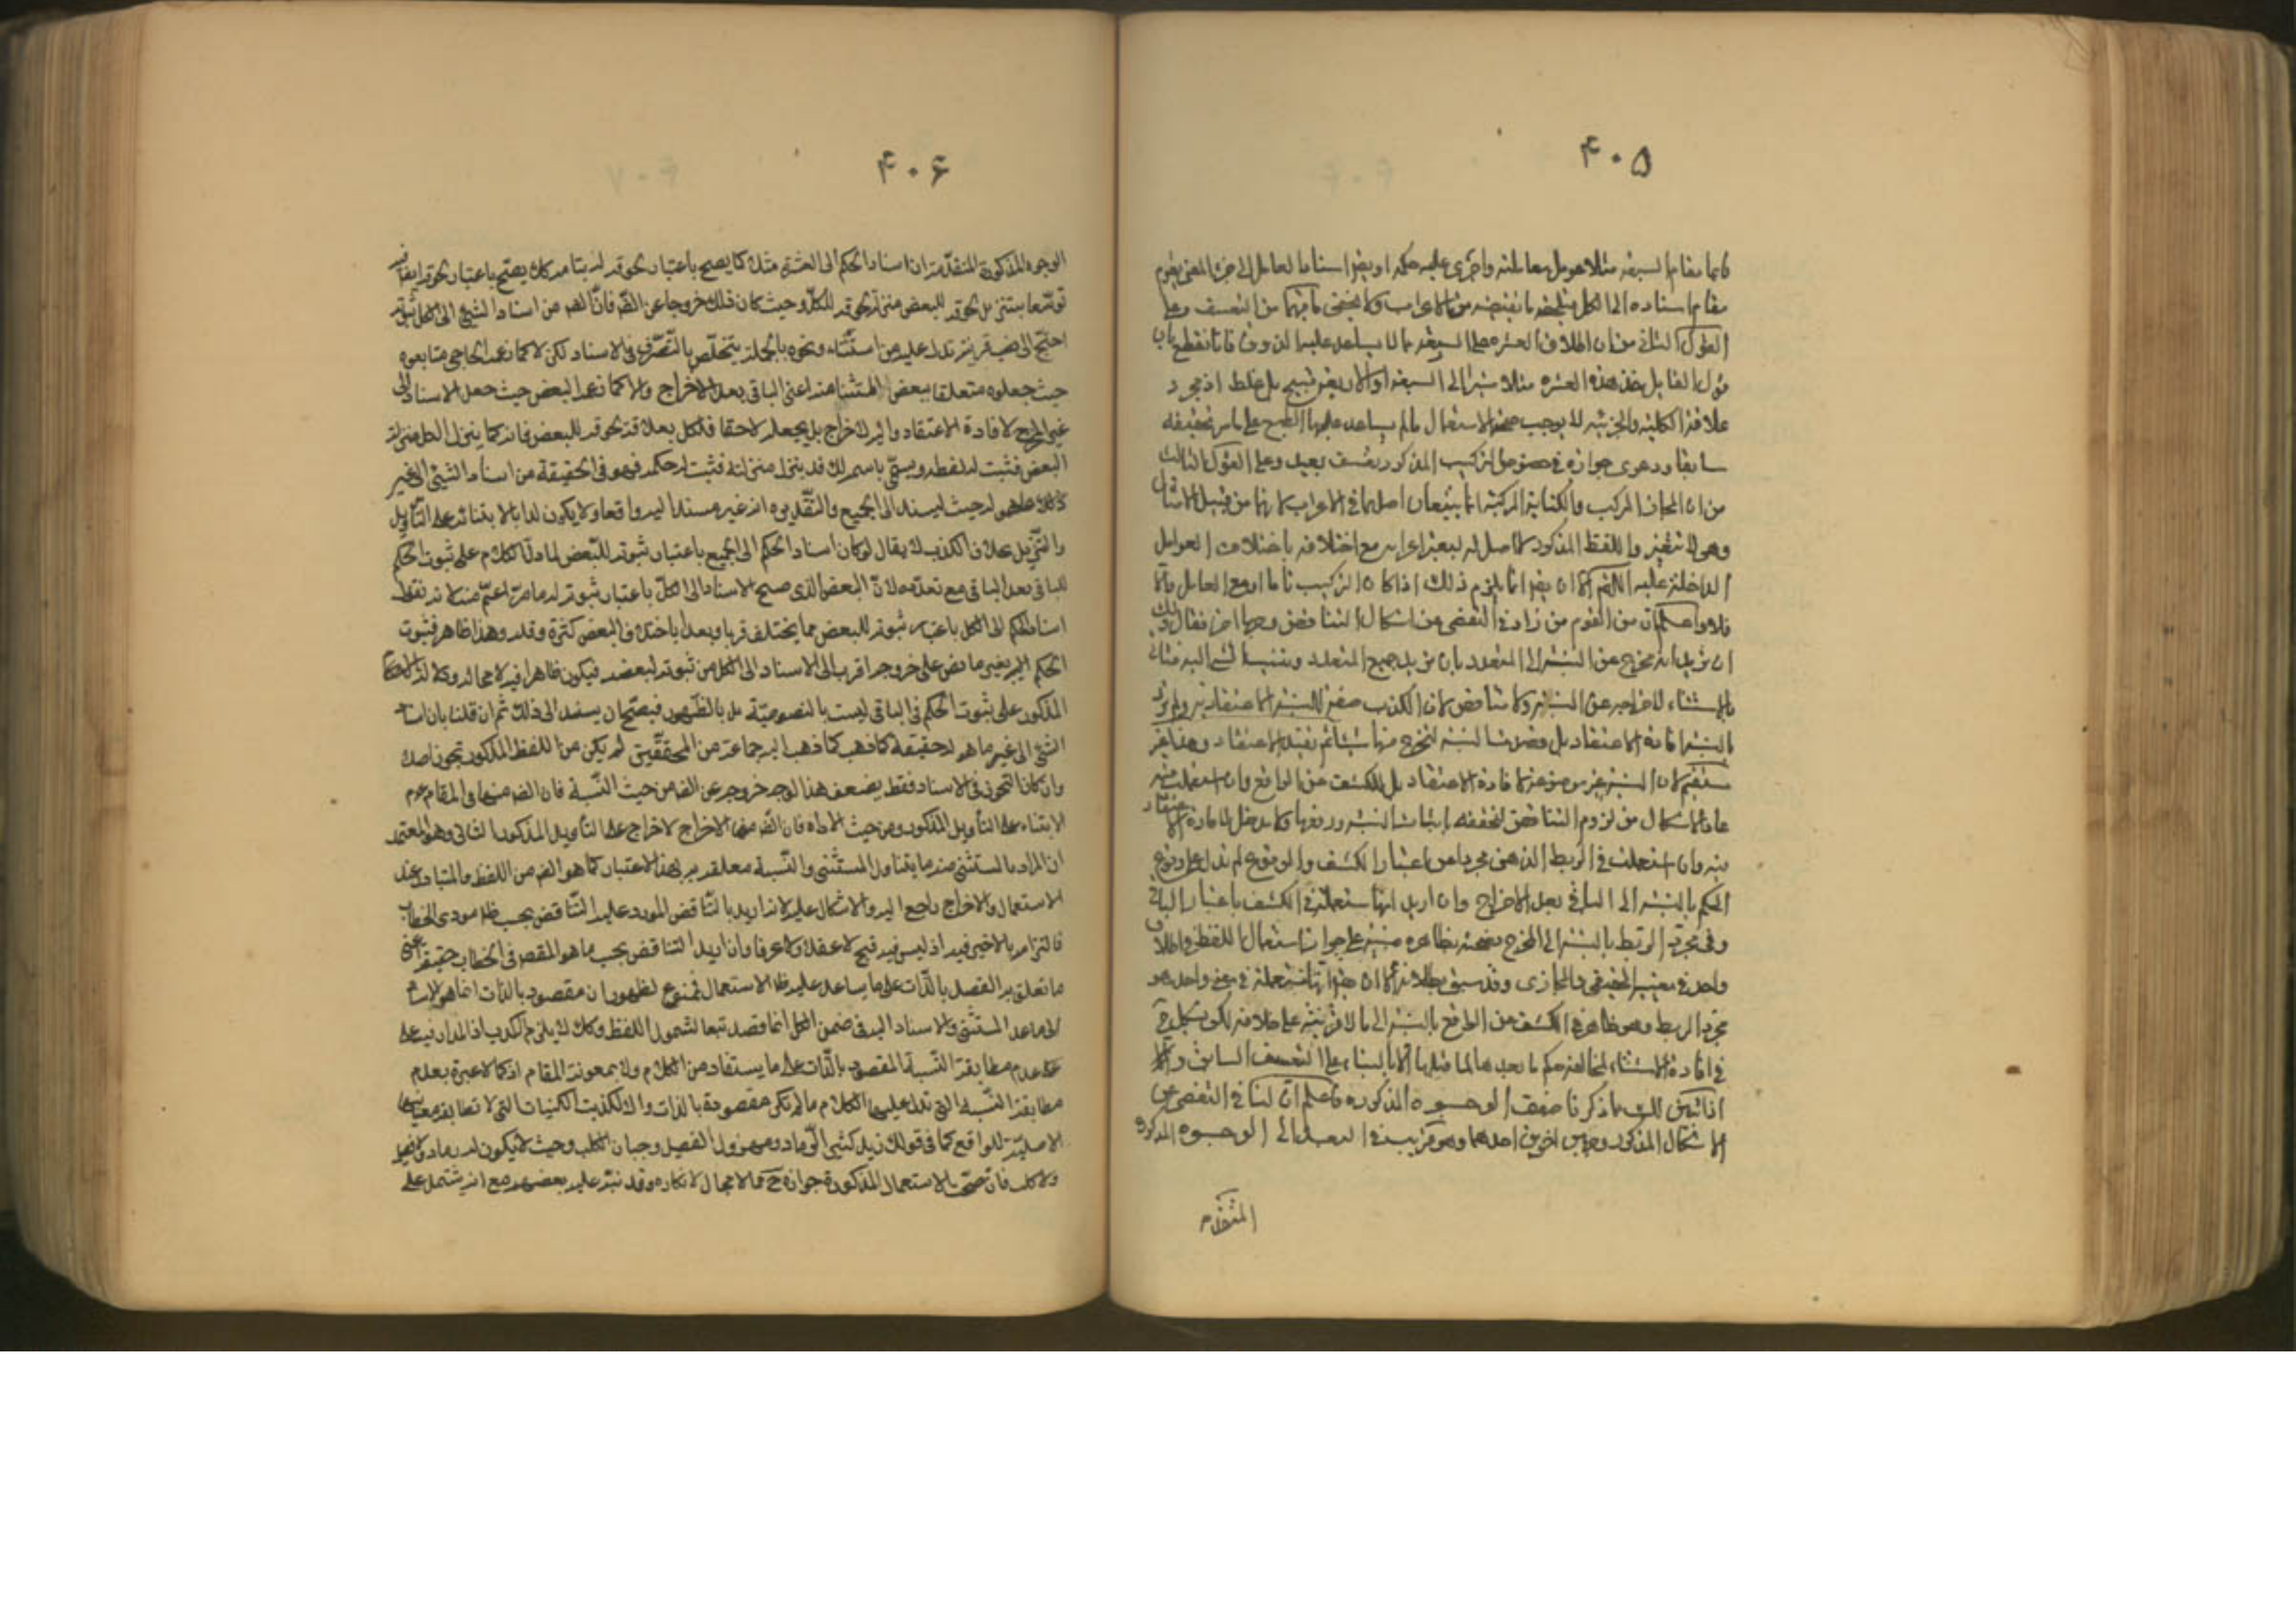 ۴۰۵
قائما مقام السبعة مثلا عومل معاملته واجرى عليه حكمه او يقر اسناد العامل الى جزء المعنى يقوم
مقام اسناده الى الكل فيلحقه ما يقتضيه من الاعراب ولا يخفى ما فيهما من التعسف وعلى
القول الثاني من ان اطلاق العشرة على السبعة مما لا يساعد عليها الذوق فانا نقطع بان
قول القائل خذ هذه العشرة مثلا مشيرا الى السبعة قبيح بل غلط اذ مجرد
علاقة الكلية والجزئية لا يوجب صحة الاستعمال ما لم يساعد عليها الطبع على ما مر تحقيقه
سابقا ودعوى جوازه في خصوص التركيب المذكور تعسف بعيد وعلى القول الثالث
من ان المجاز المركب والكناية المركبة انما يتبعان اصلهما في الاعراب لانهما من قبيل الامثال
وهي لا تتغير واللفظ المذكور لا اصل له ليعتبر اعرابه مع اختلافه باختلاف العوامل
الداخلة عليه اللهم الا ان يقر انما يلزم ذلك اذا كان التركيب تاما او مع العامل والا
فلا واعلم ان من القوم من زاد في التفصي عن اشكال التناقض وجها اخر فقال
ان زيدا مخرج عن النسبة الى المتعدد بان يريد جميع المتعدد وينسب الشيء اليه فياتي
بالاستثناء لاخراجه عن النسبة ولا تناقض لان الكذب صفة للنسبة الاعتقادية ولم يرد
بالنسبة افادة الاعتقاد بل قصد النسبة ليخرج منها شيئا ثم يفيد الاعتقاد وهذا غير
مستقيم لان النسبة غير موضوعة لافادة الاعتقاد بل للكشف عن الواقع وان استعملت فيه
عاد الاشكال من لزوم التناقض لتحققه باثبات النسبة ورفعها ولا مدخل لافادة الاعتقاد
فيه وان استعملت في الربط الذهني مجردا عن اعتبار الكشف والوقوع لم تدل على وقوع
الحكم بالنسبة الى الباقي بعد الاخراج وان اريد انها استعملت في الكشف باعتبار الباقي
وفي مجرد الربط بالنسبة الى المخرج فصحته بظاهره مبنية على جواز استعمال اللفظ واطلاق
واحد في معنييه الحقيقي والمجازي وقد سبق بطلانه الا ان يقر انها مستعملة في معنى واحد هو
مجرد الربط وهو ظاهر في الكشف عن الواقع بالنسبة الى ما لا قرينة على خلافه لكن يشكل
في افادة الاستثناء لمخالفة حكم ما بعدها لما قبلها الا بالبناء على التعسف السابق
اذا تبين لك بما ذكرنا ضعف الوجوه المذكورة فاعلم ان لنا في التفصي عن
الاشكال المذكور وجهين اخرين احدهما وهو قريب في البعد الى الوجوه المذكورة
المتقدم
۴۰۶
الوجوه المذكورة المتقدمة ان اسناد الحكم الى العشرة مثلا كما يصح باعتبار لحوقه لها بتمامه كك يصح باعتبار لحوقه
توسعا بتنزيل لحوقه للبعض منزلة لحوقه للكل وحيث كان ذلك خروجا عن الظ فان الظ من اسناد الشيء الى الكل
احتيج الى نصب قرينة تدل عليه من استثناء ونحوه بالجملة يتخلص بالتصرف في الاسناد لكن لا كما زعمه الحاجبي ومتابعوه
حيث جعلوه متعلقا ببعض المستثنى منه اعني الباقي بعد الاخراج ولا كما زعمه البعض حيث جعل الاسناد الى
غير المخرج لافادة الاعتقاد واليه لاخراج بل يجعله لاحقا للكل بعلاقة لحوقه للبعض فانه كما ينزل الكل منزلة
البعض فثبت له لفظه ويسمى باسمه كك قد ينزل منزلته فثبت له حكمه فهو في الحقيقة من اسناد الشيء الى غير
ما هو له حيث ليسند الى الجميع والتقدير انه غير مسند اليه واقعا ولا يكون كذبا لابتنائه على التأويل
والتنزيل بخلاف الكذب لا يقال لو كان اسناد الحكم الى الجميع باعتبار ثبوته للبعض لما دل الكلام على ثبوت الحكم
للباقي بعد الباقي مع تعدده لان البعض الذي صح الاسناد الى الكل باعتبار ثبوته له
اسناد الحكم الى الكل باعتبار ثبوته للبعض مما يختلف قربا وبعدا باختلاف البعض كثرة وقلة وهذا ظاهر فثبوت
الحكم لغير ما نص على خروجه اقرب الى الاسناد الى الكل من ثبوته لبعضه فيكون ظاهرا فيه لا محالة ودلالة الكلام
المذكور على ثبوت الحكم في الباقي ليست بالنصوصية بل بالظهور فيصح ان يستند الى ذلك ثم ان قلنا بان اسناد
الشيء الى غير ما هو له حقيقة كما ذهب اليه جماعة من المحققين لم يكن من اللفظ المذكور تجوز اصلا
وان كان التجوز في الاسناد فقط يضعف هذا الوجه خروجه عن الظ من حيث النسبة فان الظ منها في المقام عدم
الابتناء على التأويل المذكور ومن حيث الاداة فان الظ منها الاخراج لا اخراج على التأويل المذكور الثاني وهو المعتمد
ان المراد بالمستثنى منه ما يتناول المستثنى والنسبة معلقة به بهذا الاعتبار كما هو الظ من اللفظ والمتبادر عند
الاستعمال والاخراج راجع اليه والاشكال عليه لانه اريد بالتناقض المورد عليه التناقض بحسب ظ مودى الخطاب
فالتزامه بالاخير فيه اذ ليس فيه قبح لا عقلا ولا عرفا وان اريد التناقض بحسب ما هو المقصود في الخطاب حقيقة اعني
ما تعلق به القصد بالذات على ما يساعد عليه ظ الاستعمال فممنوع لظهور ان مقصود بالذات انما هو الاسناد
الى ما عدا المستثنى والاسناد اليه في ضمن الكل انما قصد تبعا لشمول اللفظ وكك لا يلزم الكذب اذ المدار فيه على
عدم مطابقة النسبة المقصود بالذات على ما يستفاد من الكلام ولو بمعونة المقام اذ كما لا عبرة بعدم
مطابقة النسبة التي تدل عليها الكلام ما لم تكن مقصودة بالذات والا لكذبت الكنايات التي لا تطابق معانيها
الاصلية للواقع كما في قولك زيد كثير الرماد ومهزول الفصيل وجبان الكلب وحيث لا يكون له رماد ولا فصيل
ولا كلب فان صحة الاستعمال المذكورة جوازه ح مما لا مجال لانكاره وقد نبه عليه بعضهم مع انه يشتمل على